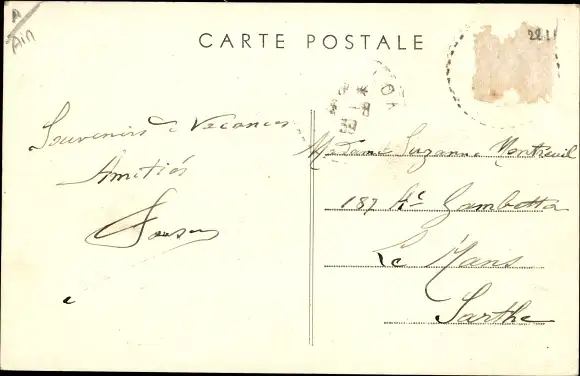 Ain
CARTE POSTALE
Souvenirs de Vacances
Amitiés
Madame Suzanne Montreuil
187 Ae Gambetta
Le Mans
Sarthe